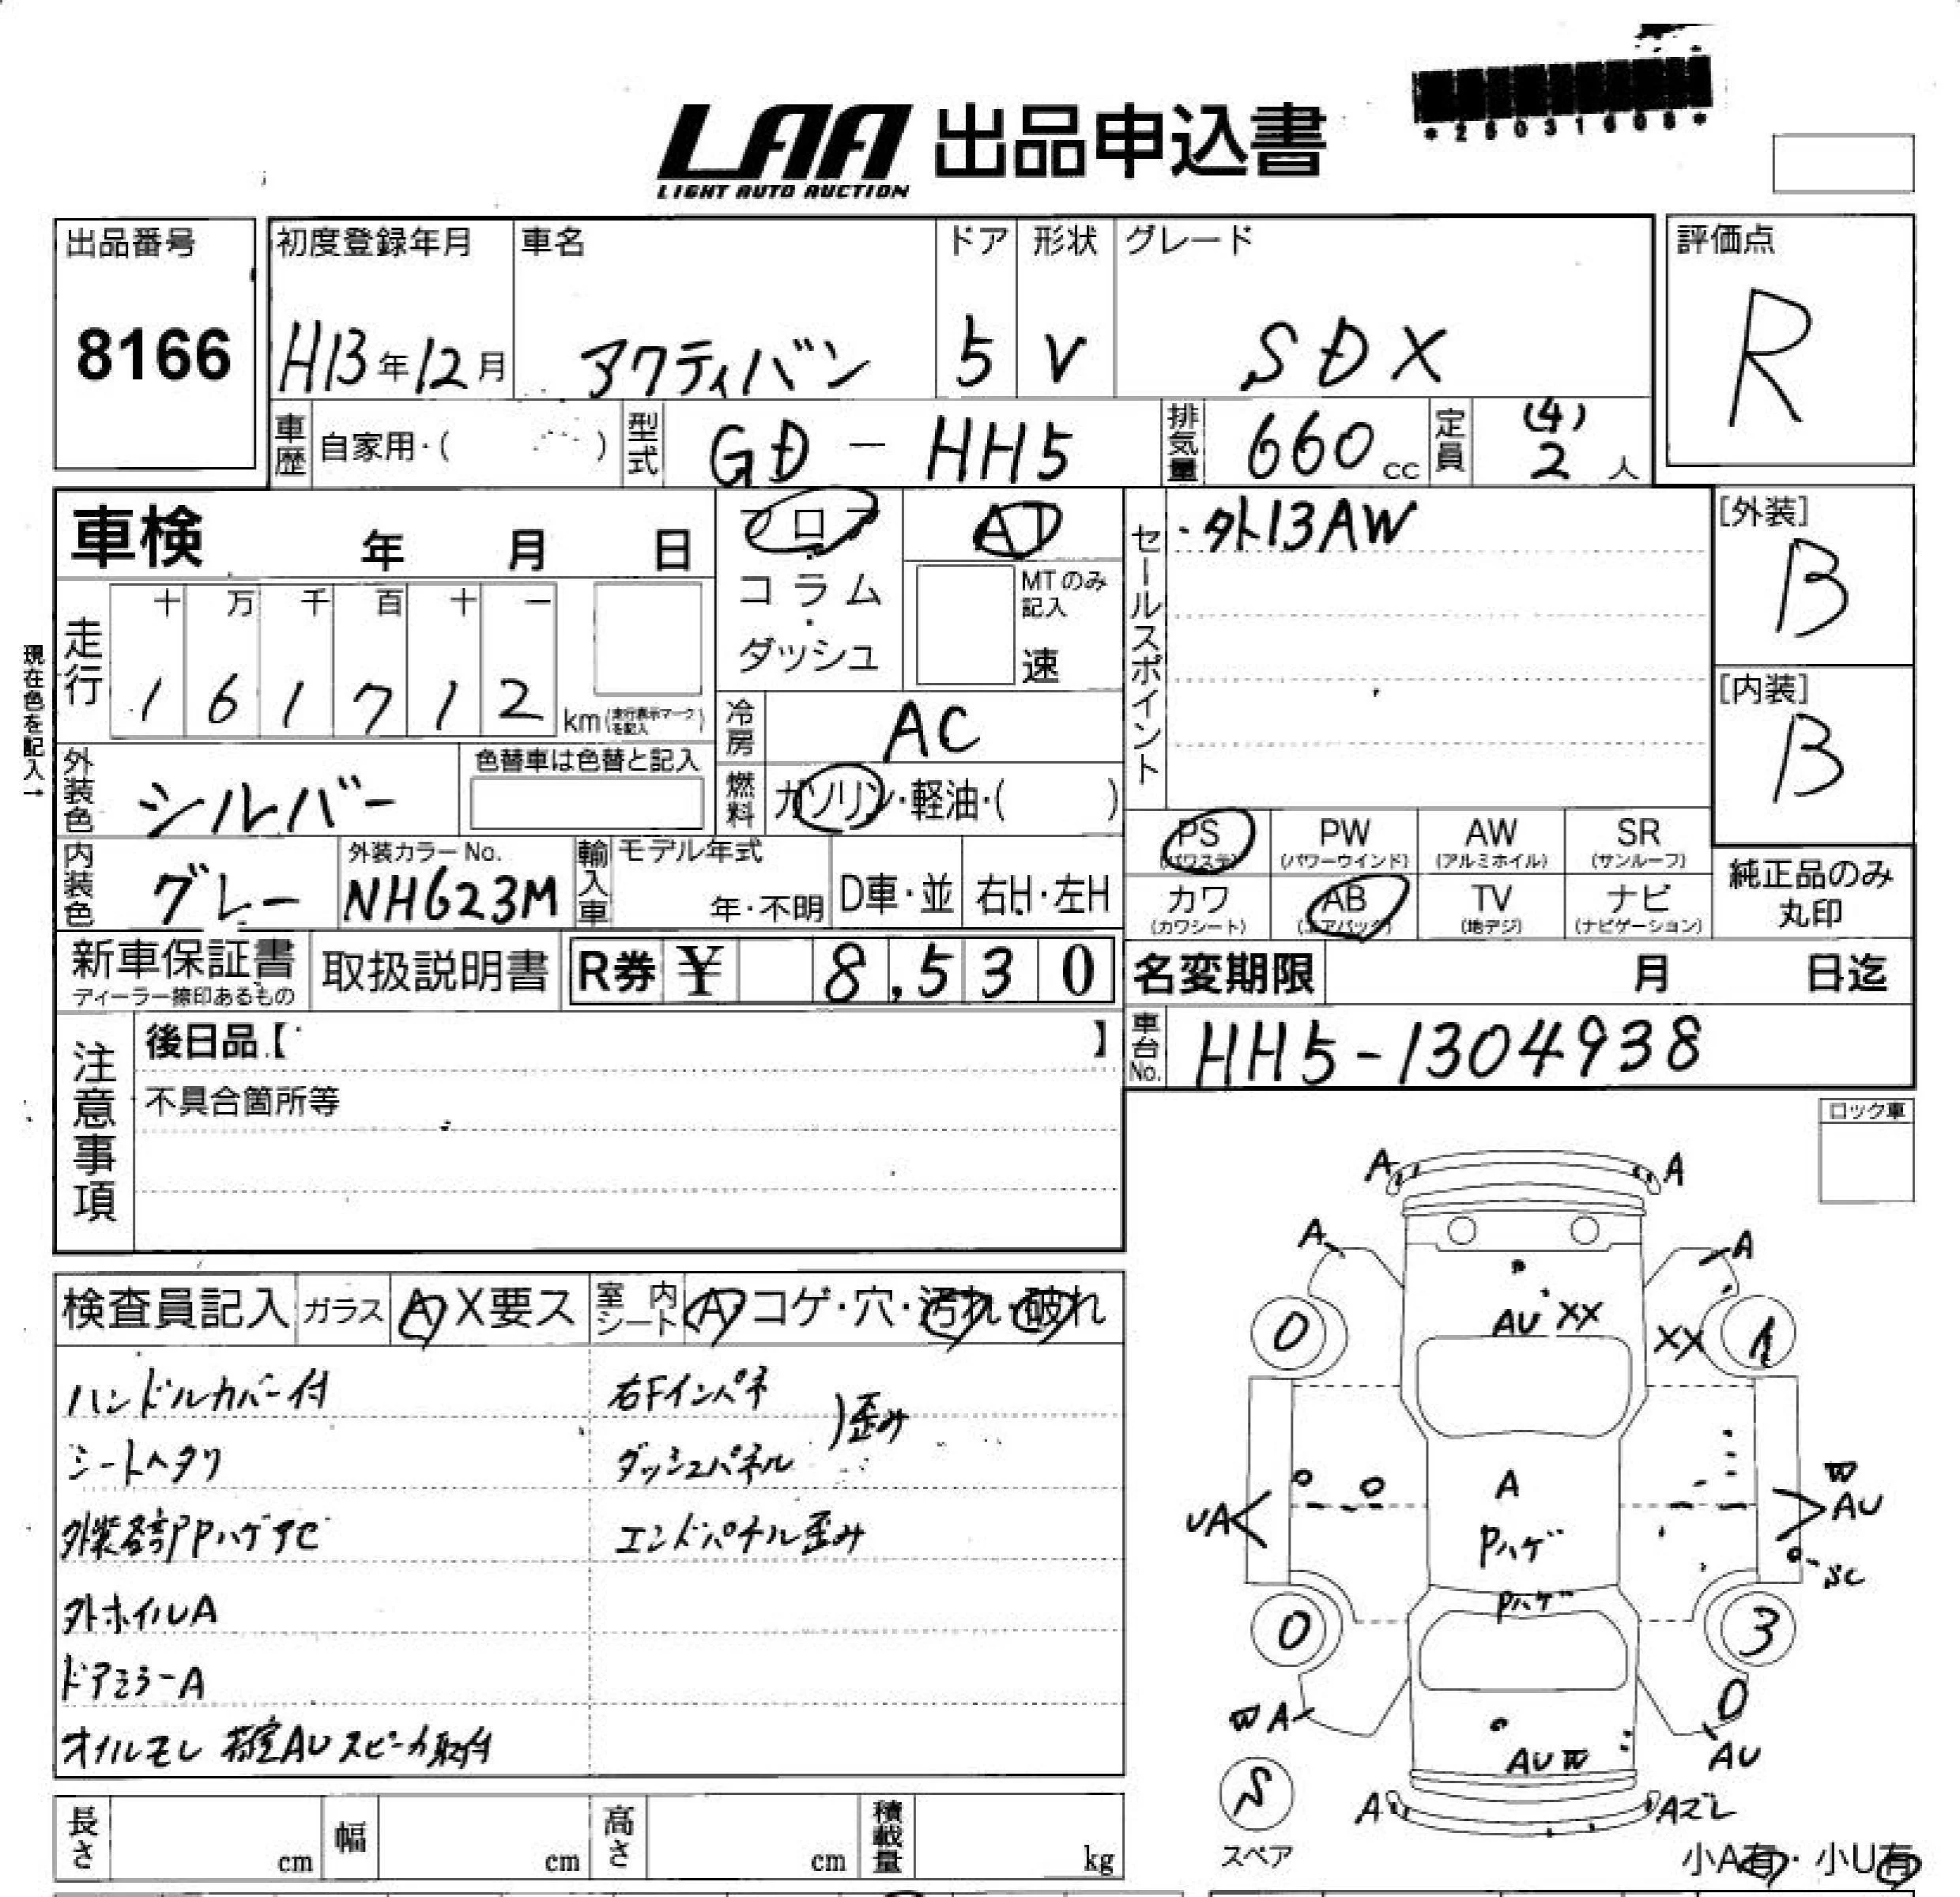 LAA 出品申込書
LIGHT AUTO AUCTION
出品番号
8166
初度登録年月
H13年12月
車名
アクティバン
ドア
5
形状
V
グレード
SDX
評価点
R
車歴 自家用・( )
型式 GD-HH5
排気量 660cc
定員 (4) 2人
車検 年 月 日
フロア
コラム
・
ダッシュ
AT
MTのみ記入
速
セールスポイント
・外13AW
[外装]
B
[内装]
B
現在色を記入→
走行
十 万 千 百 十 一
1 6 1 7 1 2 km(走行表示マークを記入)
冷房 AC
燃料 ガソリン・軽油・( )
外装色 シルバー
色替車は色替と記入
内装色 グレー
外装カラーNo.
NH623M
輸入車 モデル年式
年・不明 D車・並 右H・左H
PS (パワステ) PW (パワーウインド) AW (アルミホイル) SR (サンルーフ)
カワ (カワシート) AB (エアバッグ) TV (地デジ) ナビ (ナビゲーション)
純正品のみ
丸印
新車保証書
ディーラー捺印あるもの
取扱説明書
R券 ¥ 8,530
名変期限 月 日迄
車台No. HH5-1304938
注意事項
後日品【 】
不具合箇所等
ロック車
検査員記入 ガラス A X要ス 室内シート A コゲ・穴・汚れ・破れ
ハンドルカバー付
シートヘタリ
外装各部Pハゲサビ
外ホイルA
ドアミラーA
オイルモレ 荷室AU スピーカ取付
右Fインパネ
ダッシュパネル
)歪み
エンドパネル歪み
A A
A A
AU XX
0 XX 1
UA A W AU
Pハゲ
Pハゲ SC
0 3
W A 0
AU W AU
S
スペア
A Aズレ
小A有・小U有
長さ cm 幅 cm 高さ cm 積載量 kg